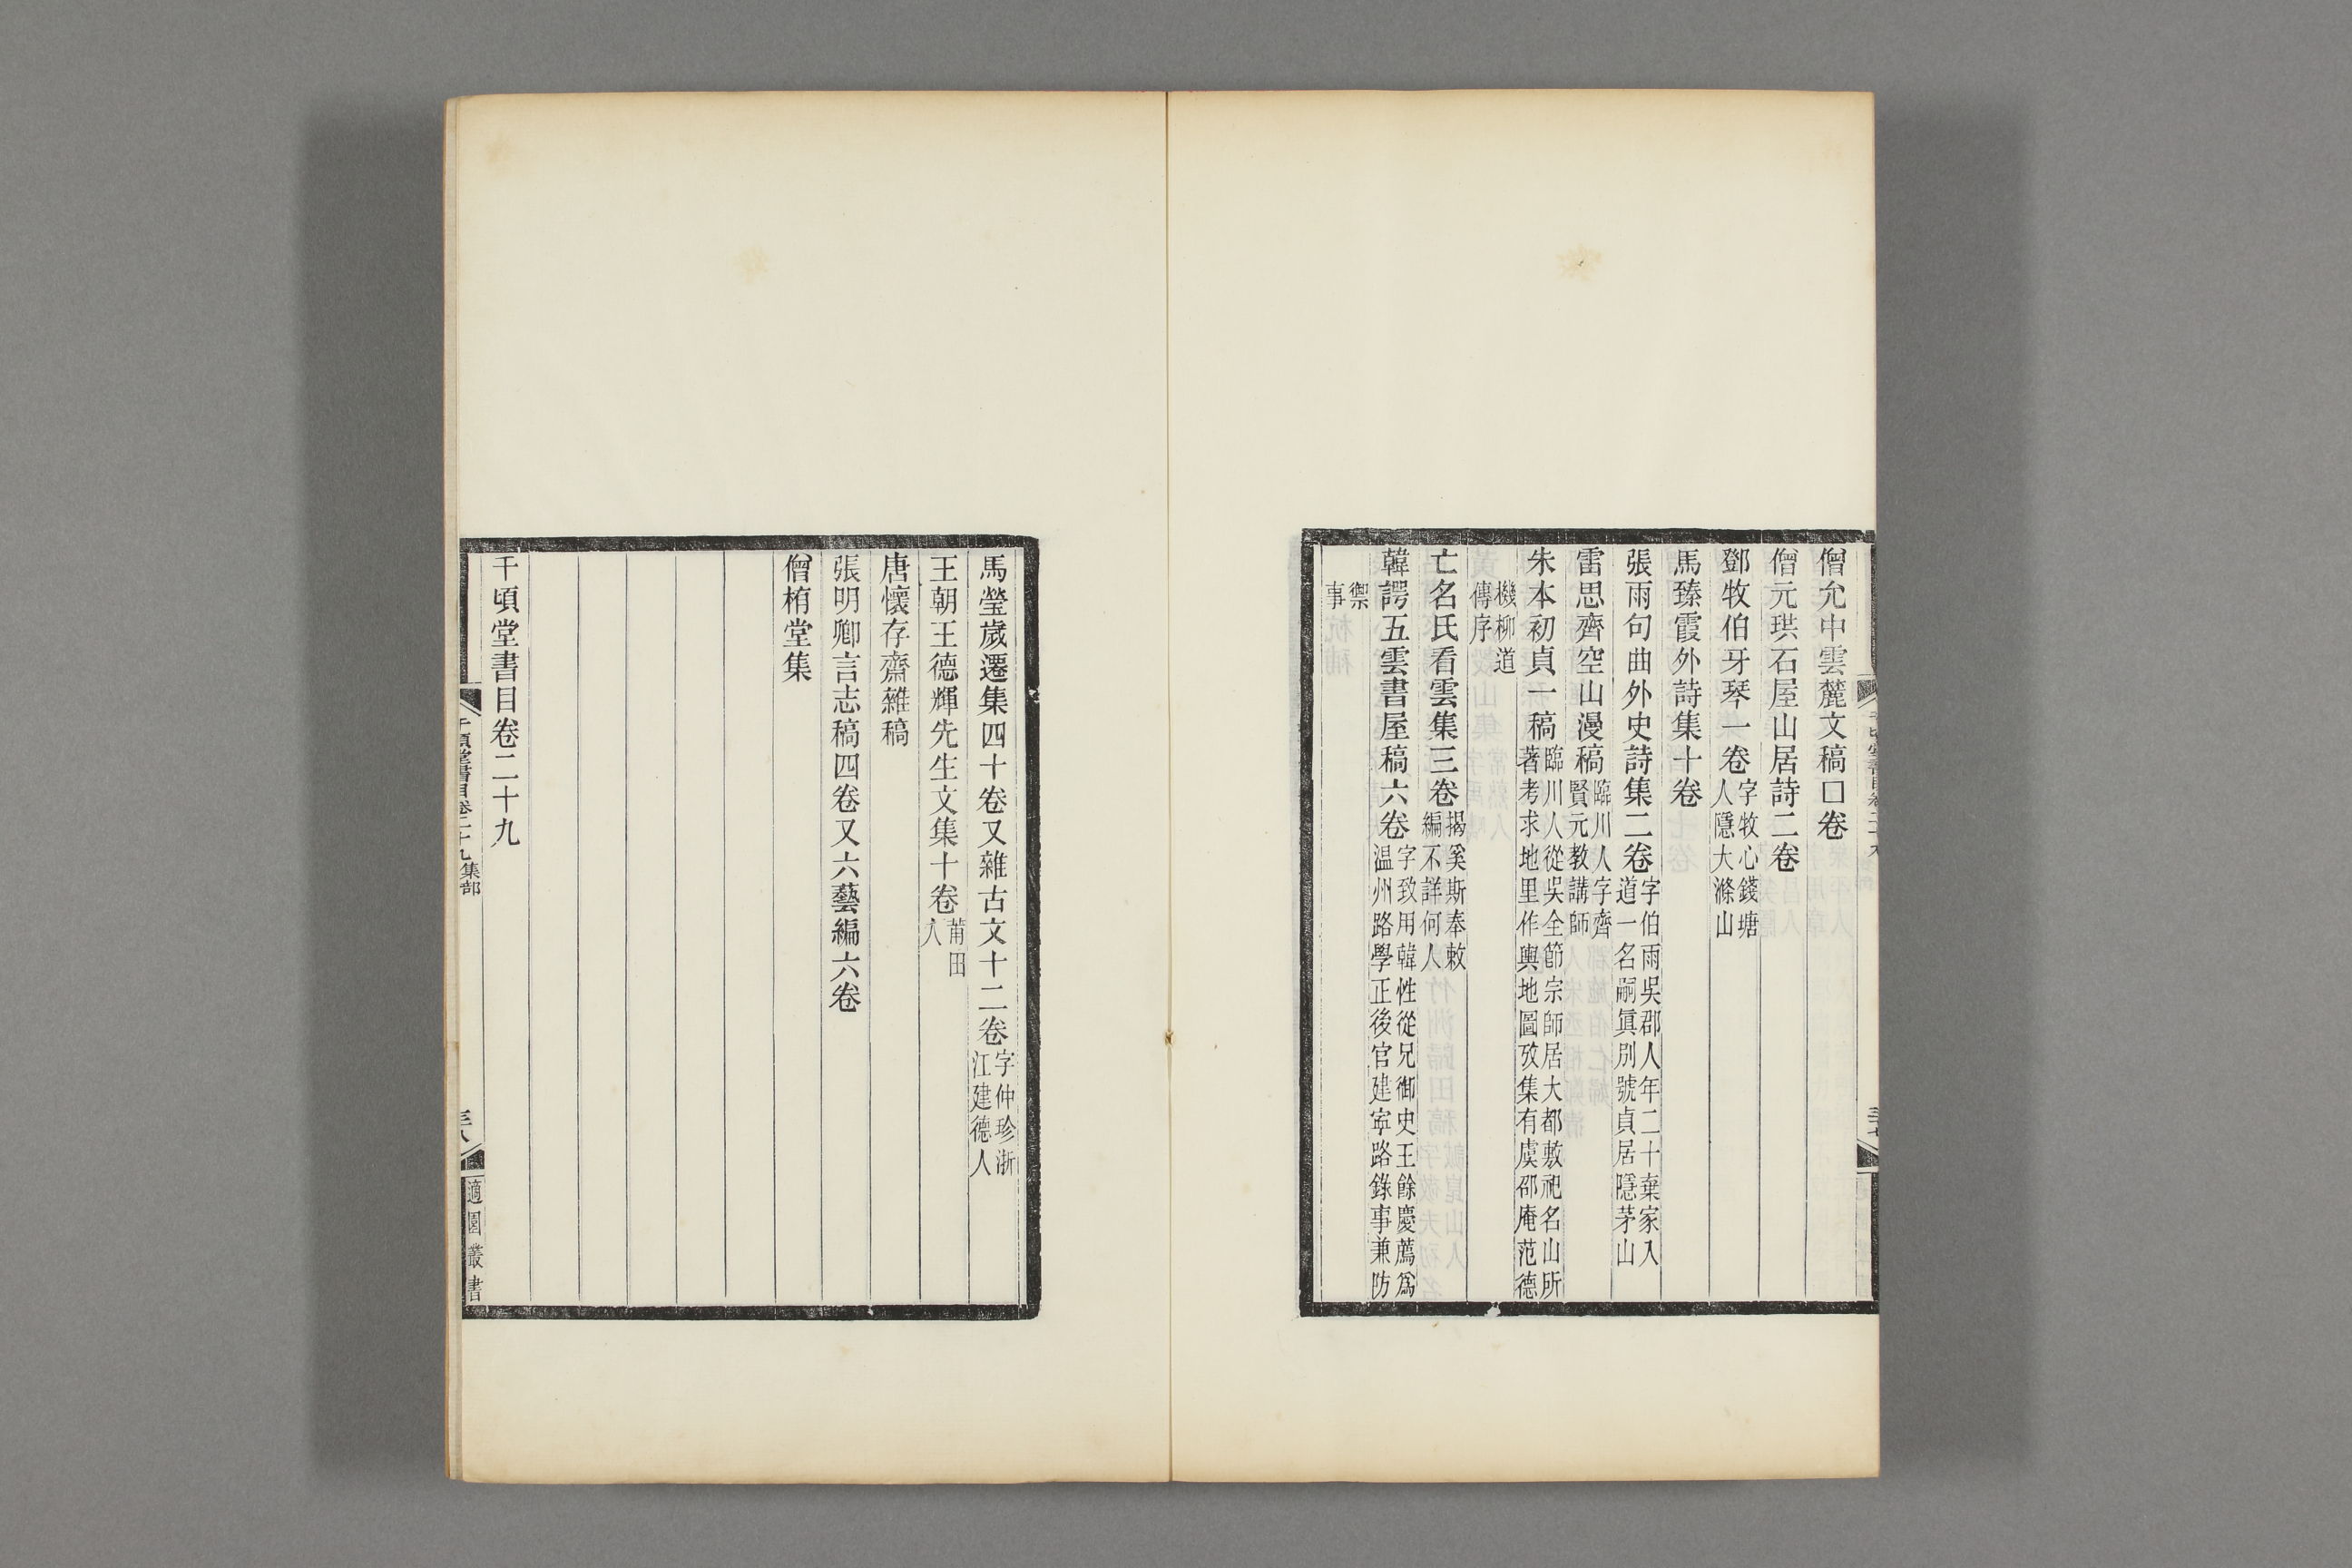 僧允中雲麓文稿口卷
僧元珙石屋山居詩二卷
鄧牧伯牙琴一卷字牧心錢塘人隱大滌山
馬臻霞外詩集十卷
張雨句曲外史詩集二卷字伯雨吳郡人年二十棄家入道一名嗣眞別號貞居隱茅山
雷思齊空山漫稿臨川人字齊賢元教講師
朱本初貞一稿臨川人從吳全節宗師居大都敷祀名山所著考求地里作輿地圖攷集有虞邵庵范德
機柳道傳序
亡名氏看雲集三卷揭奚斯奉敕編不詳何人
韓諤五雲書屋稿六卷字致用韓性從兄御史王餘慶薦爲温州路學正後官建寧路錄事兼防
禦事
馬瑩歲遷集四十卷又雜古文十二卷字仲珍浙江建德人
王朝王德輝先生文集十卷莆田人
唐懷存齋雜稿
張明卿言志稿四卷又六藝編六卷
僧栯堂集
千頃堂書目卷二十九
千頃堂書目卷二十九集部
三十八
適園叢書